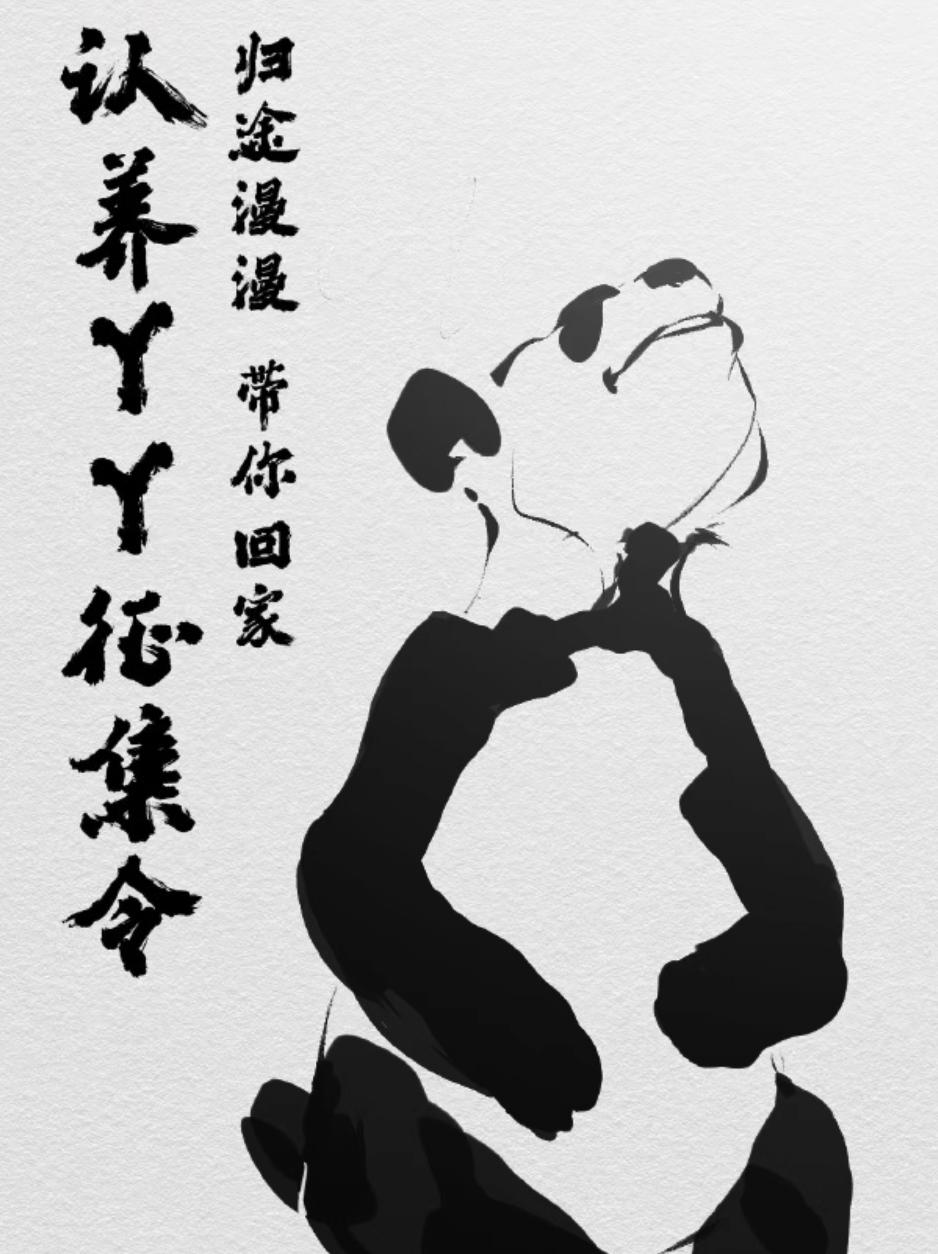 认养丫丫征集令
归途漫漫 带你回家